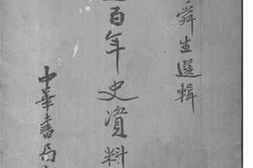 舜生選輯
百年史資料
中華書局